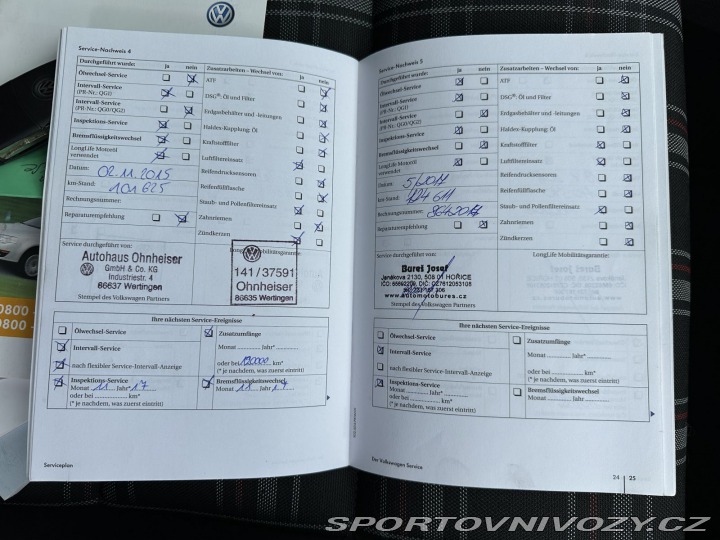 Service-Nachweis 4
Durchgeführt wurde: ja nein
Ölwechsel-Service
Intervall-Service
(PR-Nr.: QGI)
Intervall-Service
(PR-Nr.: QG0/QG2)
Inspektions-Service
Bremsflüssigkeitswechsel
LongLife Motoröl
verwendet
Datum: 02.11.2015
km-Stand: 101.625
Rechnungsnummer:
Reparaturempfehlung
Zusatzarbeiten – Wechsel von: ja nein
ATF
DSG®: Öl und Filter
Erdgasbehälter und -leitungen
Haldex-Kupplung: Öl
Kraftstofffilter
Luftfiltereinsatz
Reifendrucksensoren
Reifenfüllflasche
Staub- und Pollenfiltereinsatz
Zahnriemen
Zündkerzen
Service durchgeführt von:
LongLife Mobilitätsgarantie:
Autohaus Ohnheiser
GmbH & Co. KG
Industriestr. 4
86637 Wertingen
141 / 37591
Ohnheiser
86635 Wertingen
Stempel des Volkswagen Partners
Ihre nächsten Service-Ereignisse
Ölwechsel-Service
Intervall-Service
nach flexibler Service-Intervall-Anzeige
Inspektions-Service
Monat 11 Jahr* 17
oder bei km*
(* je nachdem, was zuerst eintritt)
Zusatzumfänge
Monat Jahr*
oder bei 120000 km*
(* je nachdem, was zuerst eintritt)
Bremsflüssigkeitswechsel
Monat 11 Jahr 17
Serviceplan
Service-Nachweis 5
Durchgeführt wurde: ja nein
Ölwechsel-Service
Intervall-Service
(PR-Nr.: QGI)
Intervall-Service
(PR-Nr.: QG0/QG2)
Inspektions-Service
Bremsflüssigkeitswechsel
LongLife Motoröl
verwendet
Datum:
km-Stand: 124 611
Rechnungsnummer:
Reparaturempfehlung
Zusatzarbeiten – Wechsel von: ja nein
ATF
DSG®: Öl und Filter
Erdgasbehälter und -leitungen
Haldex-Kupplung: Öl
Kraftstofffilter
Luftfiltereinsatz
Reifendrucksensoren
Reifenfüllflasche
Staub- und Pollenfiltereinsatz
Zahnriemen
Zündkerzen
Service durchgeführt von:
LongLife Mobilitätsgarantie:
Bureš Josef
Janákova 2130, 508 01 HOŘICE
www.automotobures.cz
Stempel des Volkswagen Partners
Ihre nächsten Service-Ereignisse
Ölwechsel-Service
Intervall-Service
nach flexibler Service-Intervall-Anzeige
Inspektions-Service
Monat Jahr*
oder bei km*
(* je nachdem, was zuerst eintritt)
Zusatzumfänge
Monat Jahr*
oder bei km*
(* je nachdem, was zuerst eintritt)
Bremsflüssigkeitswechsel
Monat Jahr*
Der Volkswagen Service
24 25
0800
800
SPORTOVNIVOZY.CZ